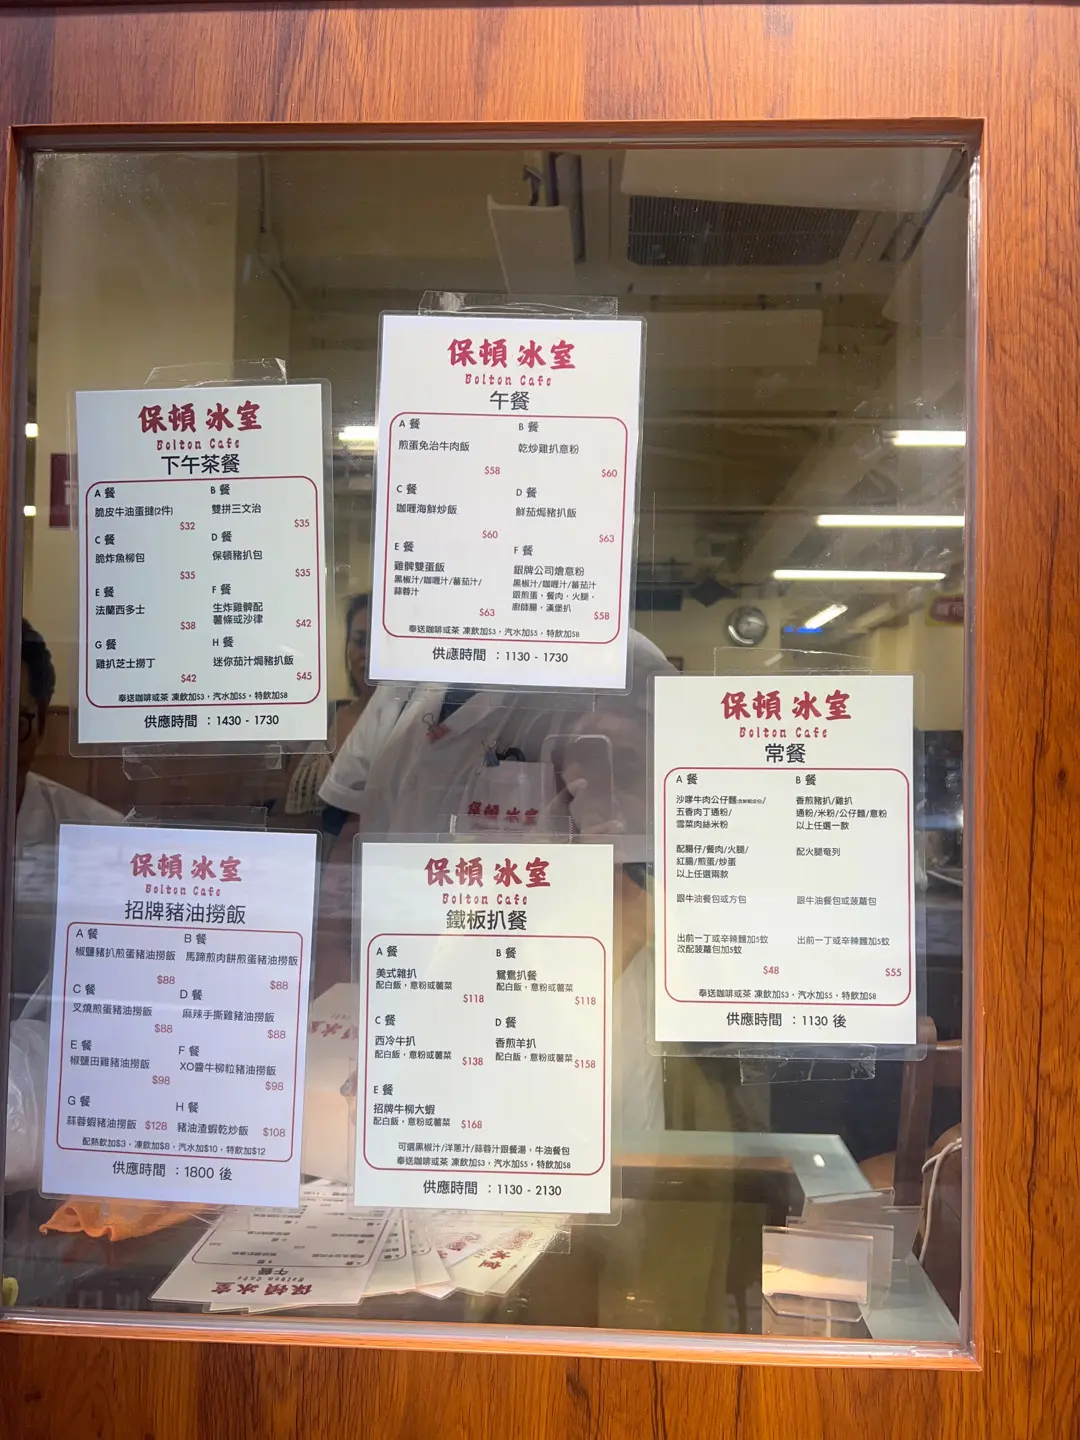 保頓冰室
Bolton Cafe
午餐
A 餐
煎蛋免治牛肉飯
$58
B 餐
乾炒雞扒意粉
$60
C 餐
咖喱海鮮炒飯
$60
D 餐
鮮茄焗豬扒飯
$63
E 餐
雞髀雙蛋飯
黑椒汁/咖喱汁/蕃茄汁/
蒜蓉汁
$63
F 餐
銀牌公司燴意粉
黑椒汁/咖喱汁/蕃茄汁
跟煎蛋，餐肉，火腿，
廚師腸，漢堡扒
$58
奉送咖啡或茶 凍飲加$3，汽水加$5，特飲加$8
供應時間 ：1130 - 1730
保頓冰室
Bolton Cafe
下午茶餐
A 餐
脆皮牛油蛋撻(2件)
$32
B 餐
雙拼三文治
$35
C 餐
脆炸魚柳包
$35
D 餐
保頓豬扒包
$35
E 餐
法蘭西多士
$38
F 餐
生炸雞髀配
薯條或沙律
$42
G 餐
雞扒芝士撈丁
$42
H 餐
迷你茄汁焗豬扒飯
$45
奉送咖啡或茶 凍飲加$3，汽水加$5，特飲加$8
供應時間 ：1430 - 1730
保頓冰室
Bolton Cafe
常餐
A 餐
沙嗲牛肉公仔麵/
五香肉丁通粉/
雪菜肉絲米粉
配腸仔/餐肉/火腿/
紅腸/煎蛋/炒蛋
以上任選兩款
跟牛油餐包或方包
出前一丁或辛辣麵加5蚊
改配菠蘿包加5蚊
$48
B 餐
香煎豬扒/雞扒
通粉/米粉/公仔麵/意粉
以上任選一款
配火腿奄列
跟牛油餐包或菠蘿包
出前一丁或辛辣麵加5蚊
$55
奉送咖啡或茶 凍飲加$3，汽水加$5，特飲加$8
供應時間 ：1130 後
保頓冰室
Bolton Cafe
招牌豬油撈飯
A 餐
椒鹽豬扒煎蛋豬油撈飯
$88
B 餐
馬蹄煎肉餅煎蛋豬油撈飯
$88
C 餐
叉燒煎蛋豬油撈飯
$88
D 餐
麻辣手撕雞豬油撈飯
$88
E 餐
椒鹽田雞豬油撈飯
$98
F 餐
XO醬牛柳粒豬油撈飯
$98
G 餐
蒜蓉蝦豬油撈飯 $128
H 餐
豬油渣蝦乾炒飯 $108
配熱飲加$3，凍飲加$8，汽水加$10，特飲加$12
供應時間 ：1800 後
保頓冰室
Bolton Cafe
鐵板扒餐
A 餐
美式雜扒
配白飯，意粉或薯菜
$118
B 餐
鴛鴦扒餐
配白飯，意粉或薯菜
$118
C 餐
西冷牛扒
配白飯，意粉或薯菜 $138
D 餐
香煎羊扒
配白飯，意粉或薯菜 $158
E 餐
招牌牛柳大蝦
配白飯，意粉或薯菜 $168
可選黑椒汁/洋蔥汁/蒜蓉汁跟餐湯，牛油餐包
奉送咖啡或茶 凍飲加$3，汽水加$5，特飲加$8
供應時間 ：1130 - 2130
保頓冰室
午餐
Bolton Cafe
保頓冰室